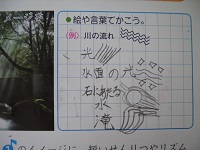 ●絵や言葉でかこう。
(例) 川の流れ
光
水面の光
石にあたる
水
滝
のイメージに